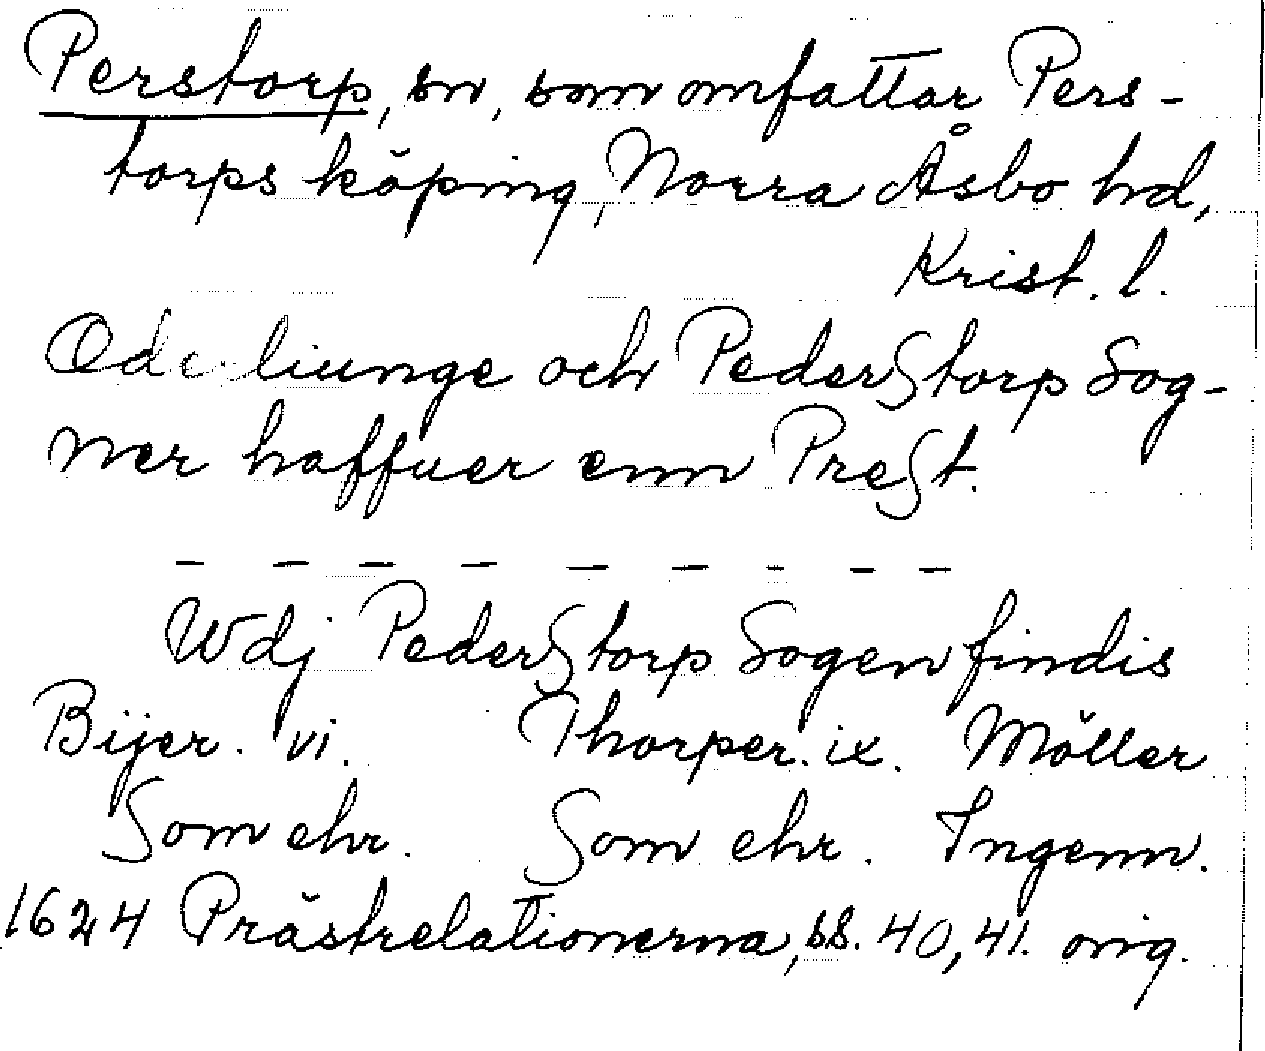 Perstorp, sn, som omfattar Pers-
torps köping, Norra Åsbo hd,
Krist. l.
liunge och PederStorp Sog-
ner haffuer enn PreSt.
— — — — — — — — —
Wdj PederStorp Sogen findis
Bijer. vi. Thorper. ix. Möller
Som ehr. Som ehr. Ingenn.
1624 Prästrelationerna, ss. 40, 41. orig.